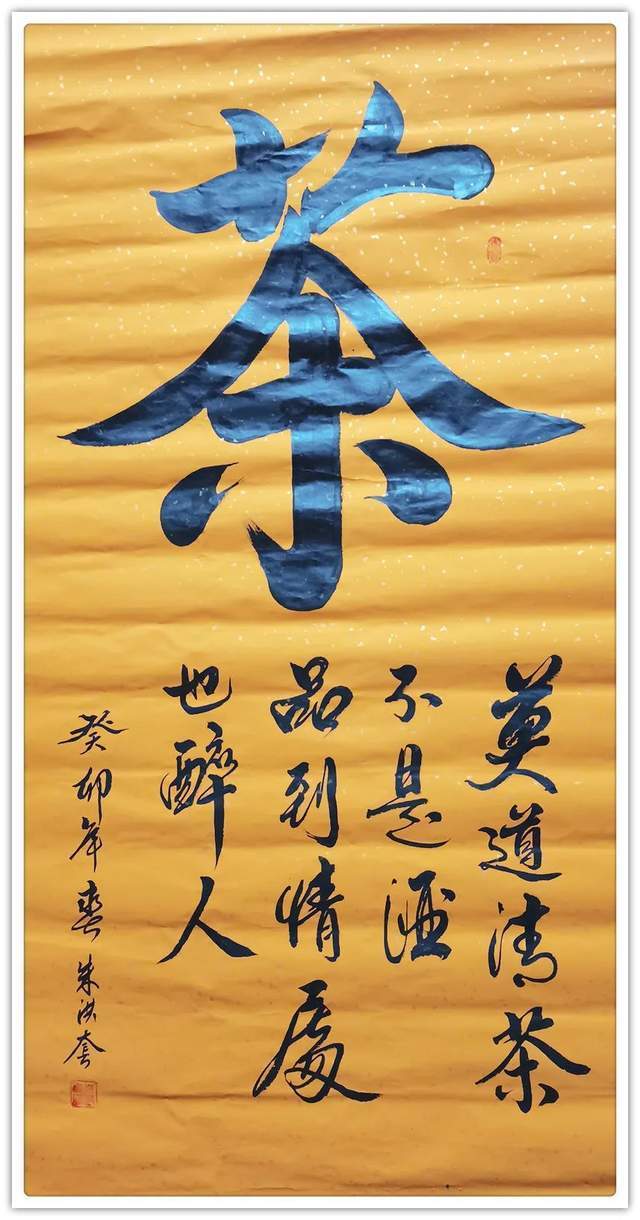 茶
莫道清茶
不是酒
品到情處
也醉人
癸卯年春 朱洪套